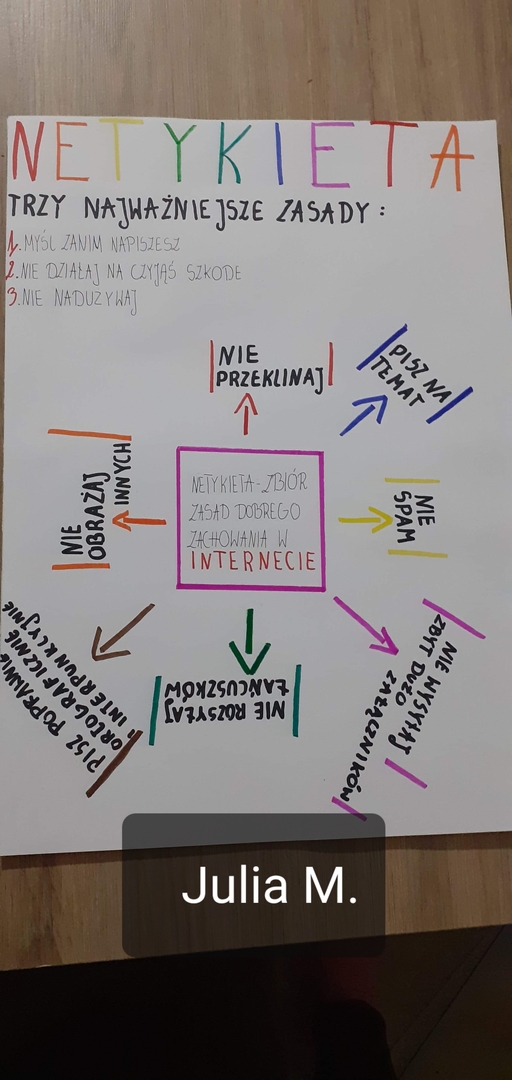 NETYKIETA
TRZY NAJWAŻNIEJSZE ZASADY:
1. MYŚL ZANIM NAPISZESZ
2. NIE DZIAŁAJ NA CZYJĄŚ SZKODE
3. NIE NADUŻYWAJ
NIE
PRZEKLINAJ
PISZ NA
TEMAT
NIE
OBRAŻAJ
INNYCH
NETYKIETA - ZBIÓR
ZASAD DOBREGO
ZACHOWANIA W
INTERNECIE
NIE
SPAM
PISZ POPRAWNIE
ORTOGRAFICZNIE
INTERPUNKCYJNIE
NIE ROZSYŁAJ
ŁAŃCUSZKÓW
NIE WYSYŁAJ
ZBYT DUŻO
ZAŁĄCZNIKÓW
Julia M.